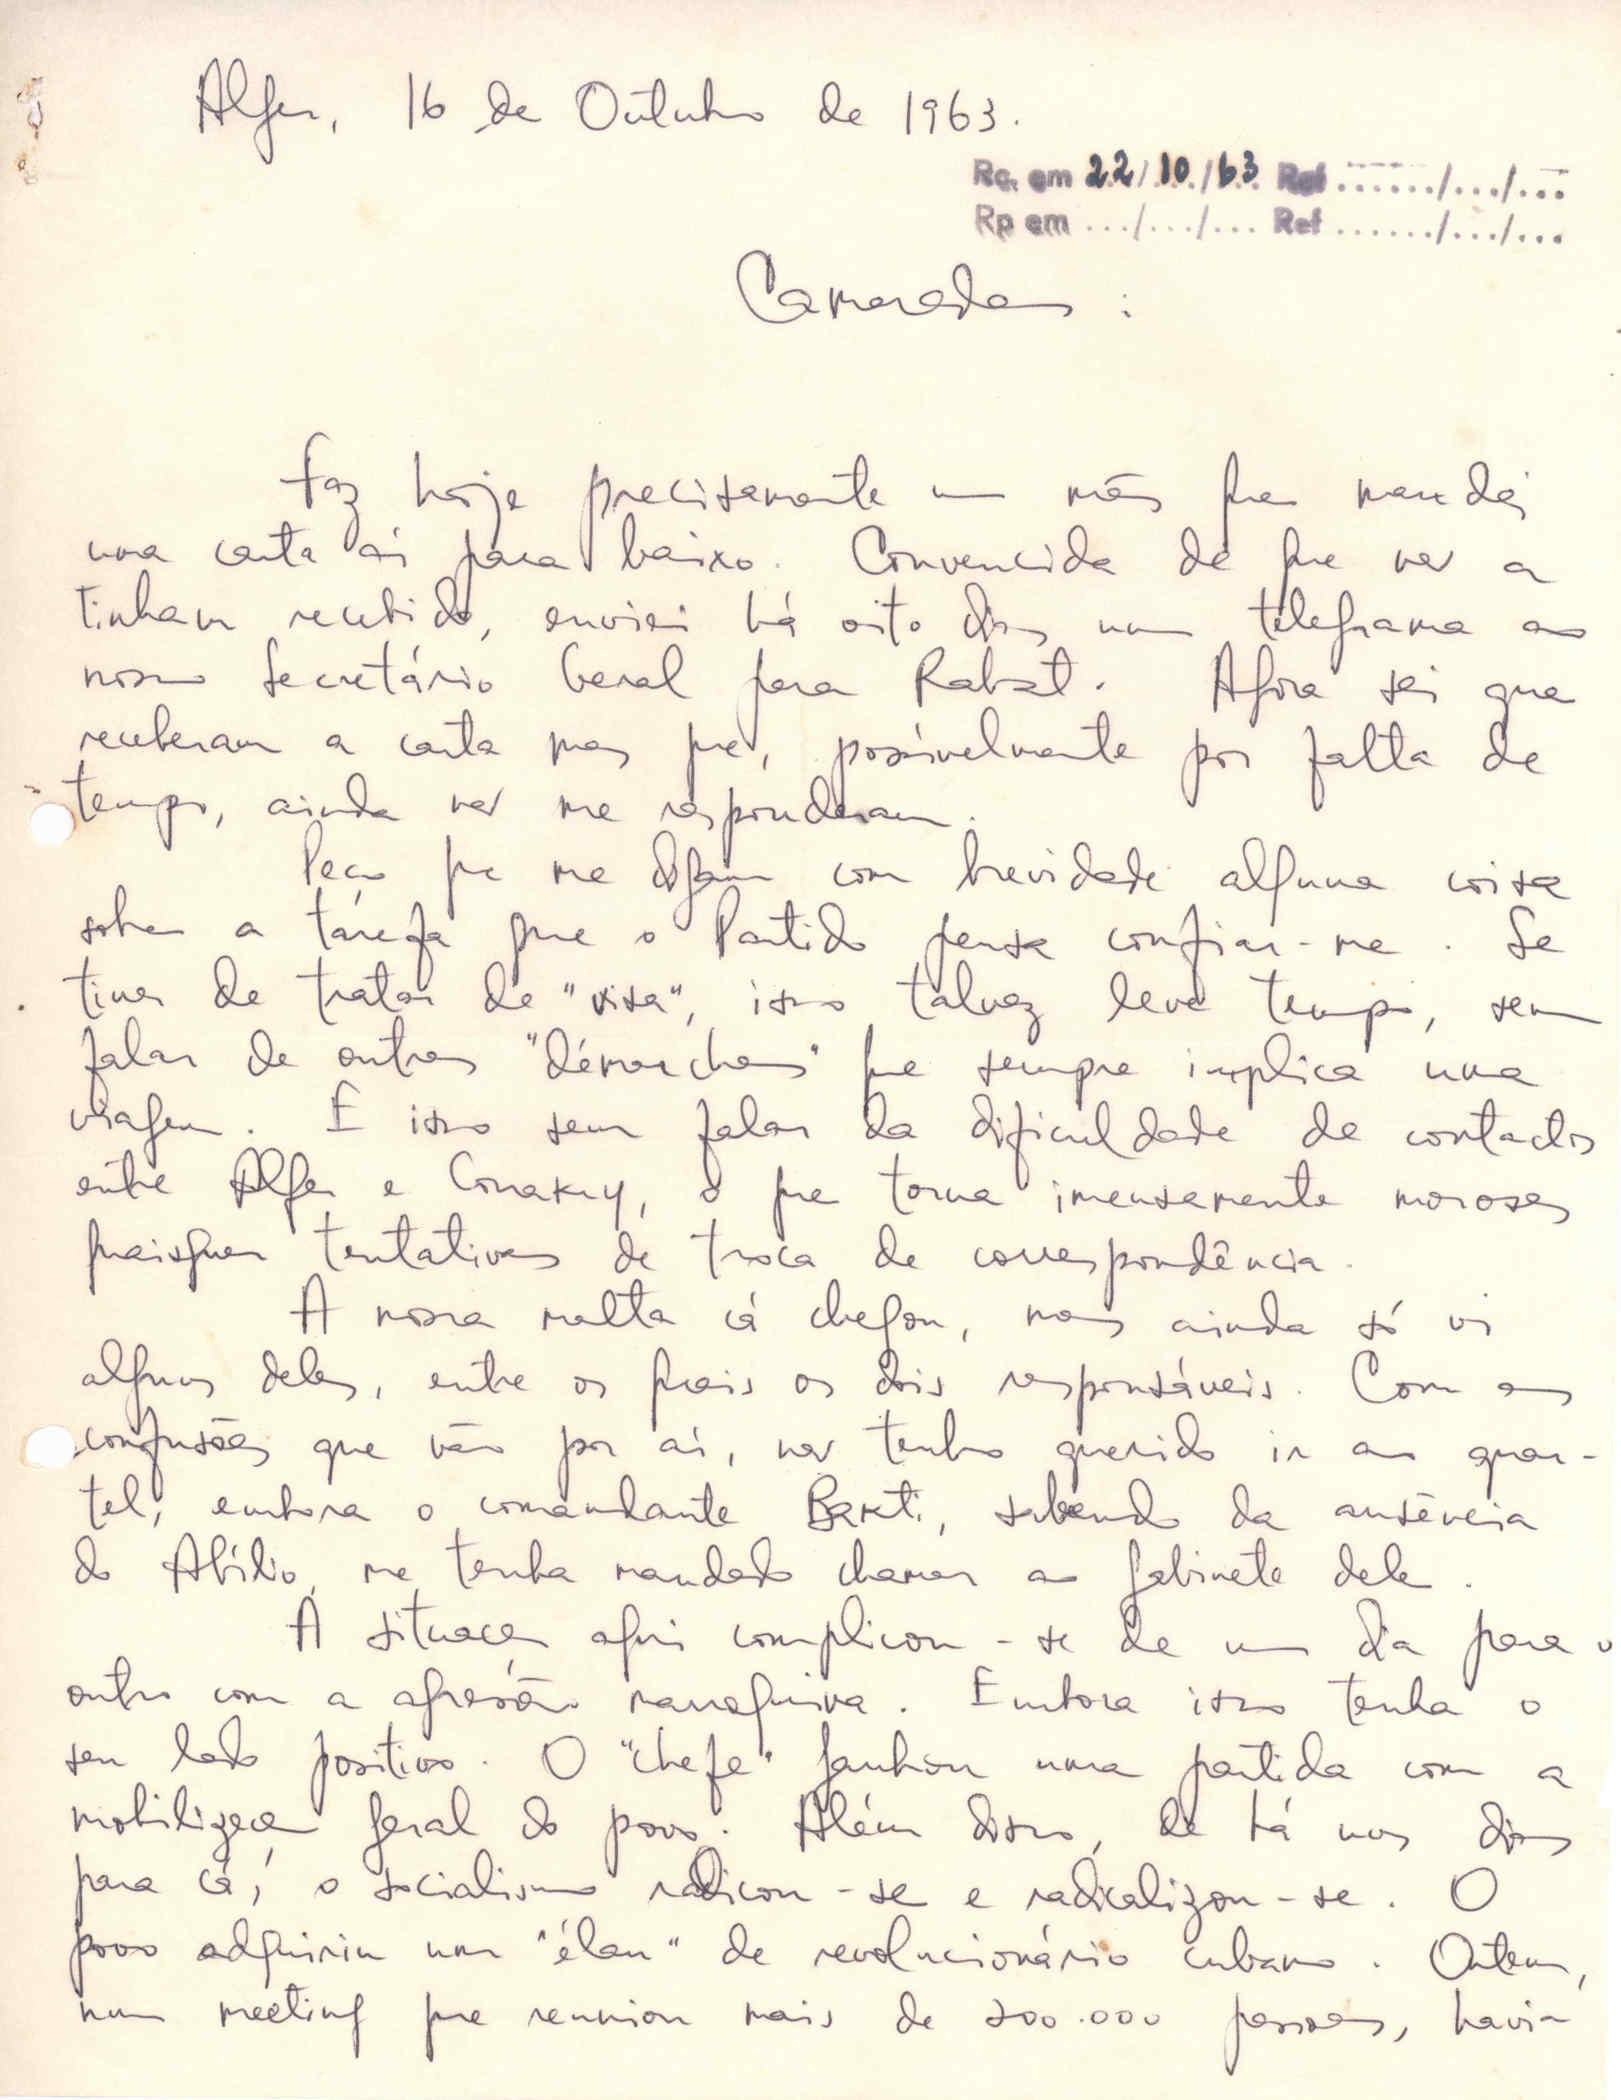 Alger, 16 de Outubro de 1963.
Rc. em 22/10/63 Ref ....../.../...
Rp em .../.../... Ref ....../.../...
Camaradas :
Faz hoje precisamente um mês que mandei
uma carta aí para baixo. Convencida de que não a
tinham recebido, enviei há oito dias um telegrama ao
nosso Secretário Geral para Rabat. Agora sei que
receberam a carta mas que, possívelmente por falta de
tempo, ainda não me responderam.
Peço que me digam com brevidade alguma coisa
sobre a tarefa que o Partido pensa confiar-me. Se
tiver de tratar de "visa", isso talvez leve tempo, sem
falar de outras "démarches" que sempre implica uma
viagem. E isso sem falar da dificuldade de contactos
entre Alger e Conakry, o que torna imensamente morosas
quaisquer tentativas de troca de correspondência.
A nossa malta cá chegou, mas ainda só vi
alguns deles, entre os quais os dois responsáveis. Com as
confusões que vão por aí, não tenho querido ir ao quar-
tel, embora o comandante Bakti, sabendo da ausência
do Abílio, me tenha mandado chamar ao gabinete dele.
A situação aqui complicou-se de um dia para o
outro com a agressão marroquina. Embora isso tenha o
seu lado positivo. O "chefe" ganhou uma partida com a
mobilização geral do povo. Além disso, de há uns dias
para cá, o socialismo radicou-se e radicalizou-se. O
povo adquiriu um "élan" de revolucionário cubano. Ontem,
num meeting que reuniu mais de 200.000 pessoas, havia